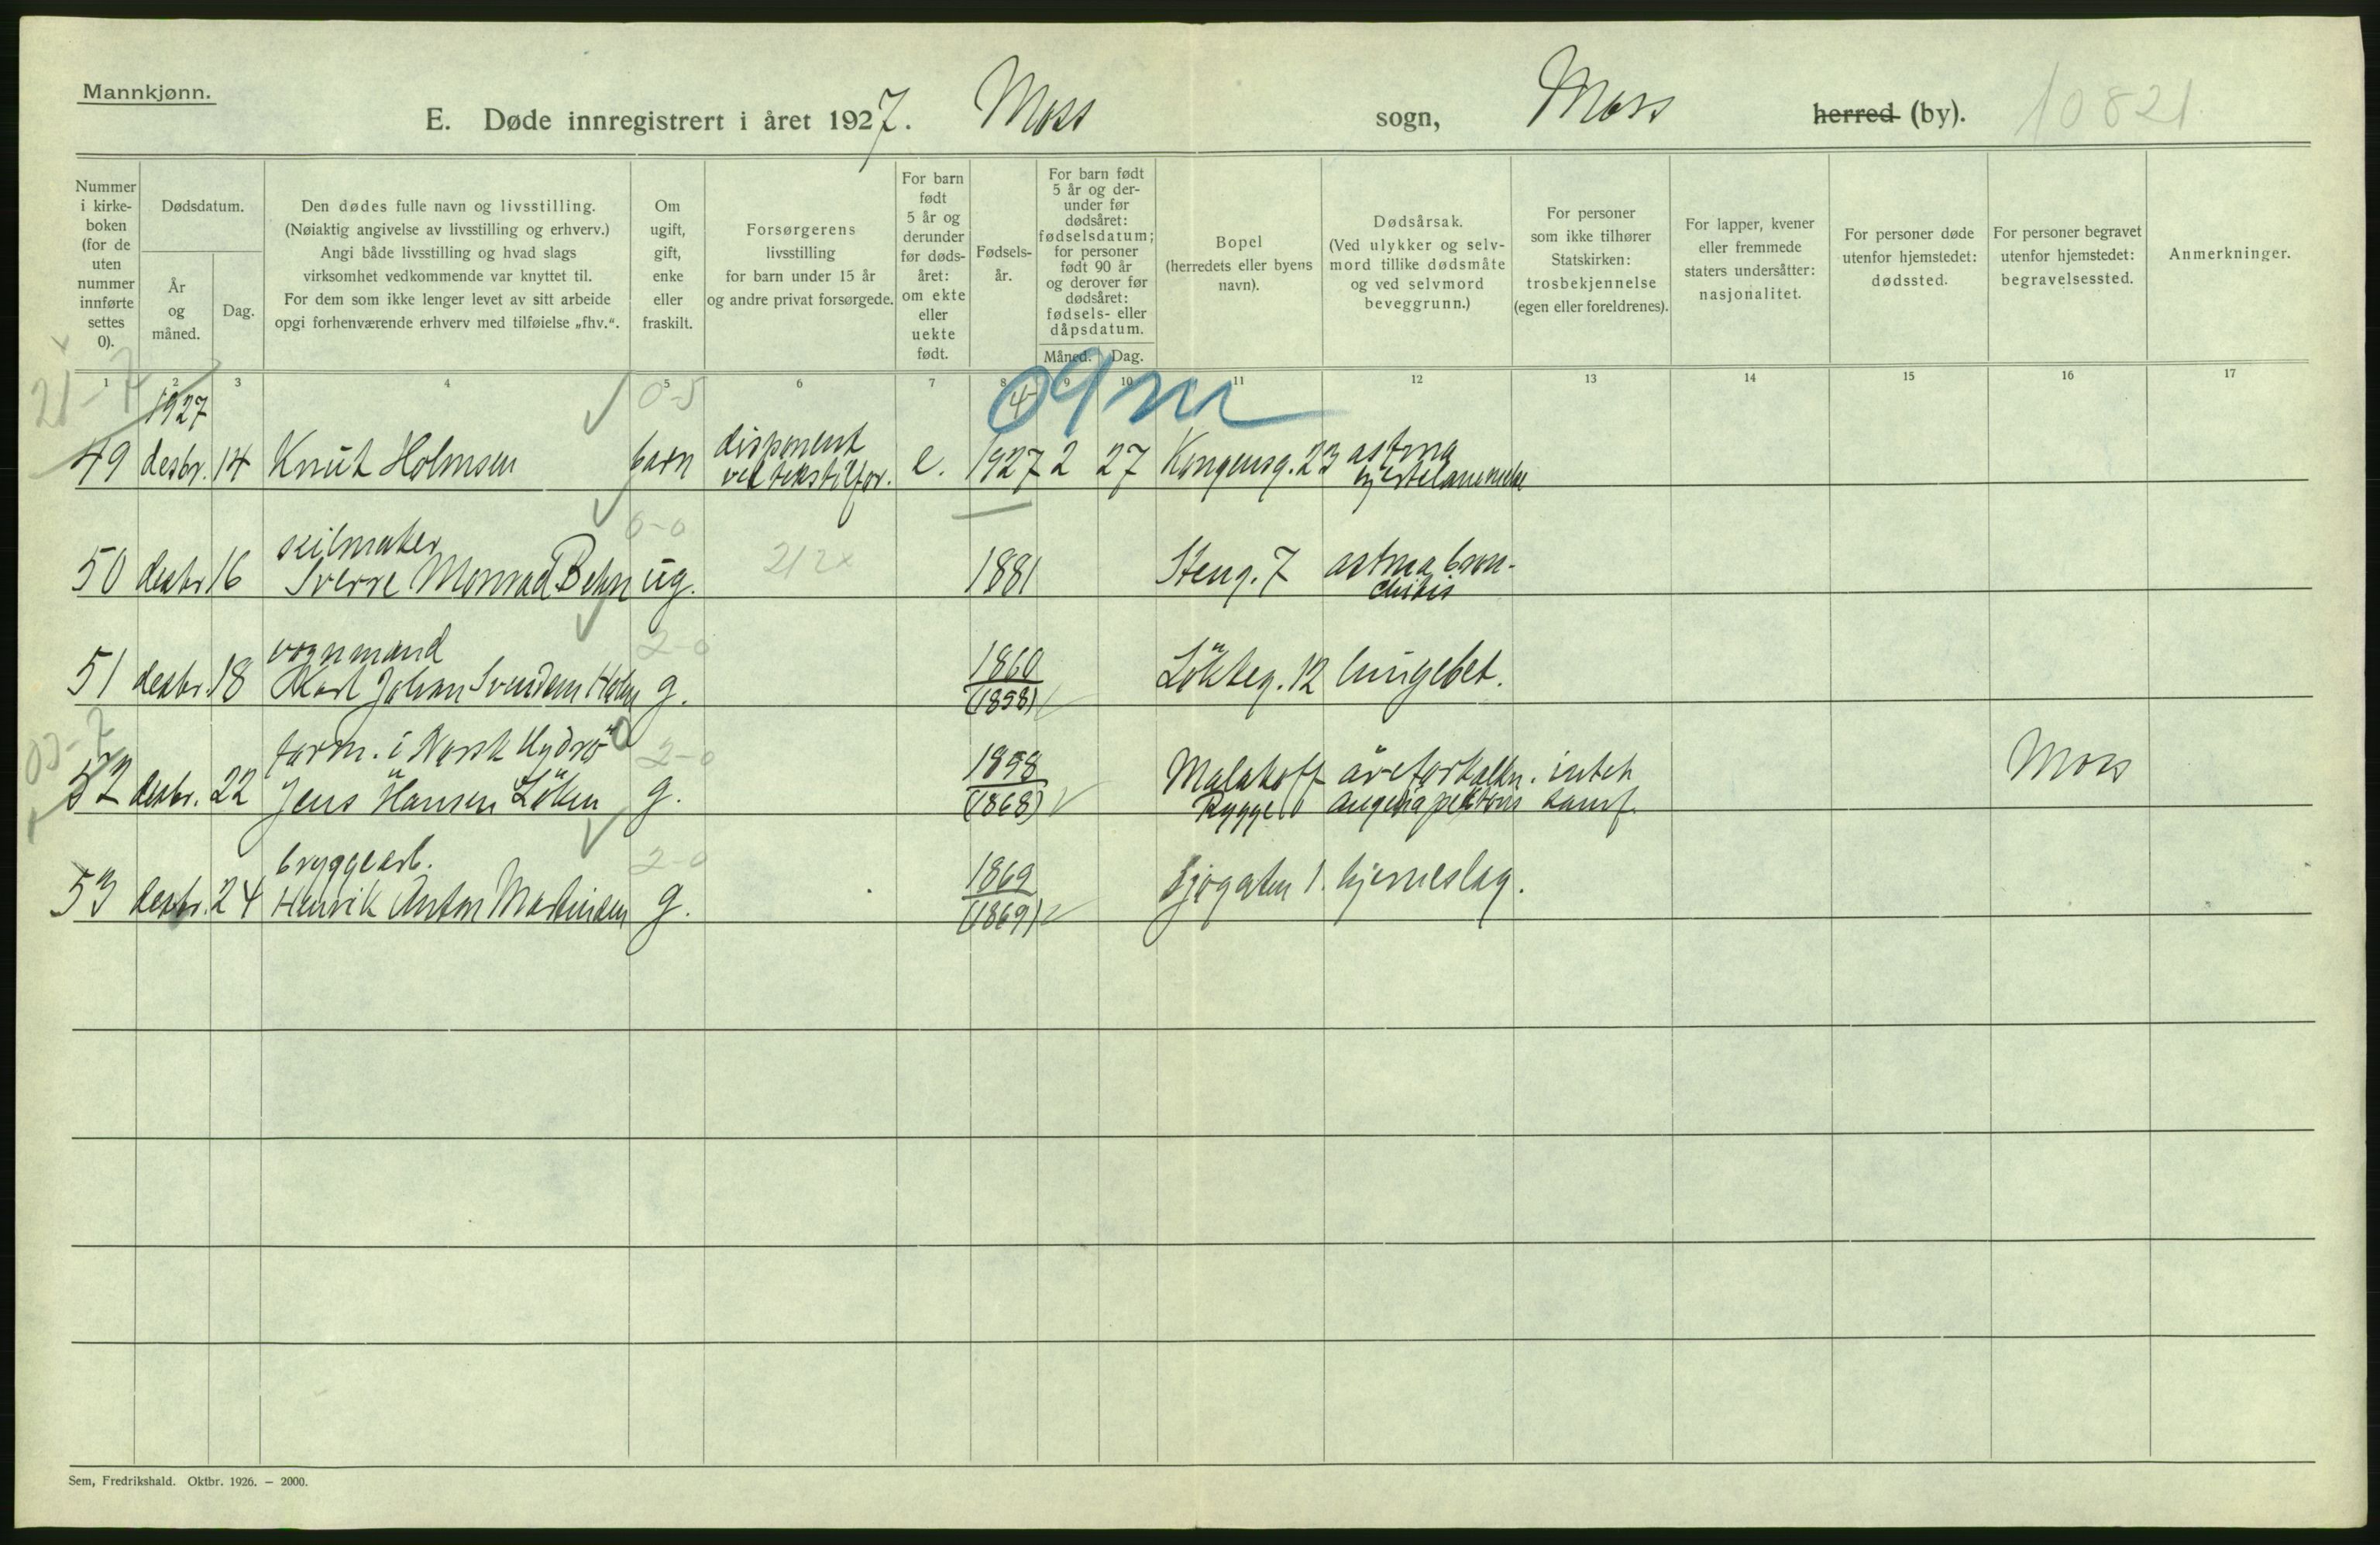 Mannkjønn.
E. Døde innregistrert i året 1927. Moss sogn, Moss herred (by). 10821
Nummer i kirke-boken (for de uten nummer innførte settes 0).
Dødsdatum.
År og måned.
Dag.
Den dødes fulle navn og livsstilling.
(Nøiaktig angivelse av livsstilling og erhverv.)
Angi både livsstilling og hvad slags
virksomhet vedkommende var knyttet til.
For dem som ikke lenger levet av sitt arbeide
opgi forhenværende erhverv med tilføielse „fhv.“.
Om ugift, gift, enke eller fraskilt.
Forsørgerens
livsstilling
for barn under 15 år
og andre privat forsørgede.
For barn født 5 år og derunder før døds-året: om ekte eller uekte født.
Fødsels-år.
For barn født 5 år og der-under før dødsåret: fødselsdatum; for personer født 90 år og derover før dødsåret: fødsels- eller dåpsdatum.
Måned. Dag.
Bopel
(herredets eller byens
navn).
Dødsårsak.
(Ved ulykker og selv-
mord tillike dødsmåte
og ved selvmord
beveggrunn.)
For personer
som ikke tilhører
Statskirken:
trosbekjennelse
(egen eller foreldrenes).
For lapper, kvener
eller fremmede
staters undersåtter:
nasjonalitet.
For personer døde
utenfor hjemstedet:
dødssted.
For personer begravet
utenfor hjemstedet:
begravelsessted.
Anmerkninger.
1 2 3 4 5 6 7 8 9 10 11 12 13 14 15 16 17
21-7 1927 0-5 4 09m
disponent astma
49 desbr. 14 Knut Holmsen barn ved tekstilfor. e. 1927 2 27 Kongensg. 23 hjertelammelse
seilmaker 0-0
50 desbr 16 Sverre Monrad Behn ug. 212x 1881 Steng. 7 astma bron-
chitis
vognmand 2-0 1860
51 desbr. 18 Karl Johan Svendsen Holm g. (1858) Lökkeg. 12 lungebet.
03-7 form. i Norsk Hydro 2-0 1858 Malakoff åreforkalkn. Moss
52 desbr. 22 Jens Hansen Löken g. (1868) Rygge angina pektoris
bryggearb. 2-0 1869
53 desbr. 24 Henrik Anton Martinsen g. (1869) Sjøgaten 1. hjerneslag.
Sem, Fredrikshald. Oktbr. 1926. – 2000.